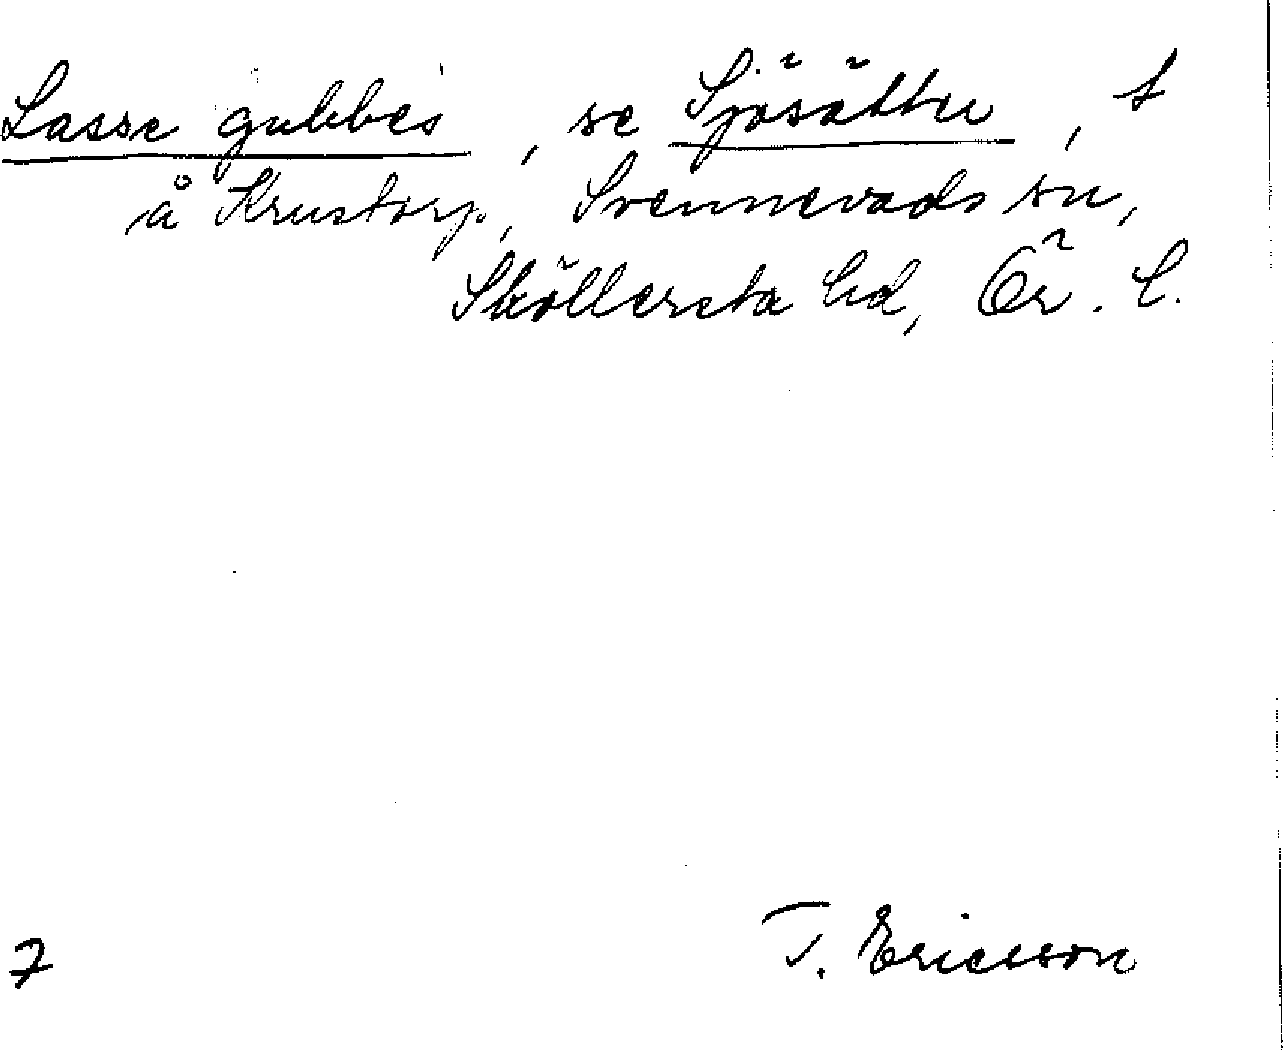 Lasse gubbes, se Sjösätter, t
å Krustorp, Svennevads sn,
Sköllersta hd, Ör. l.
T. Ericsson
7